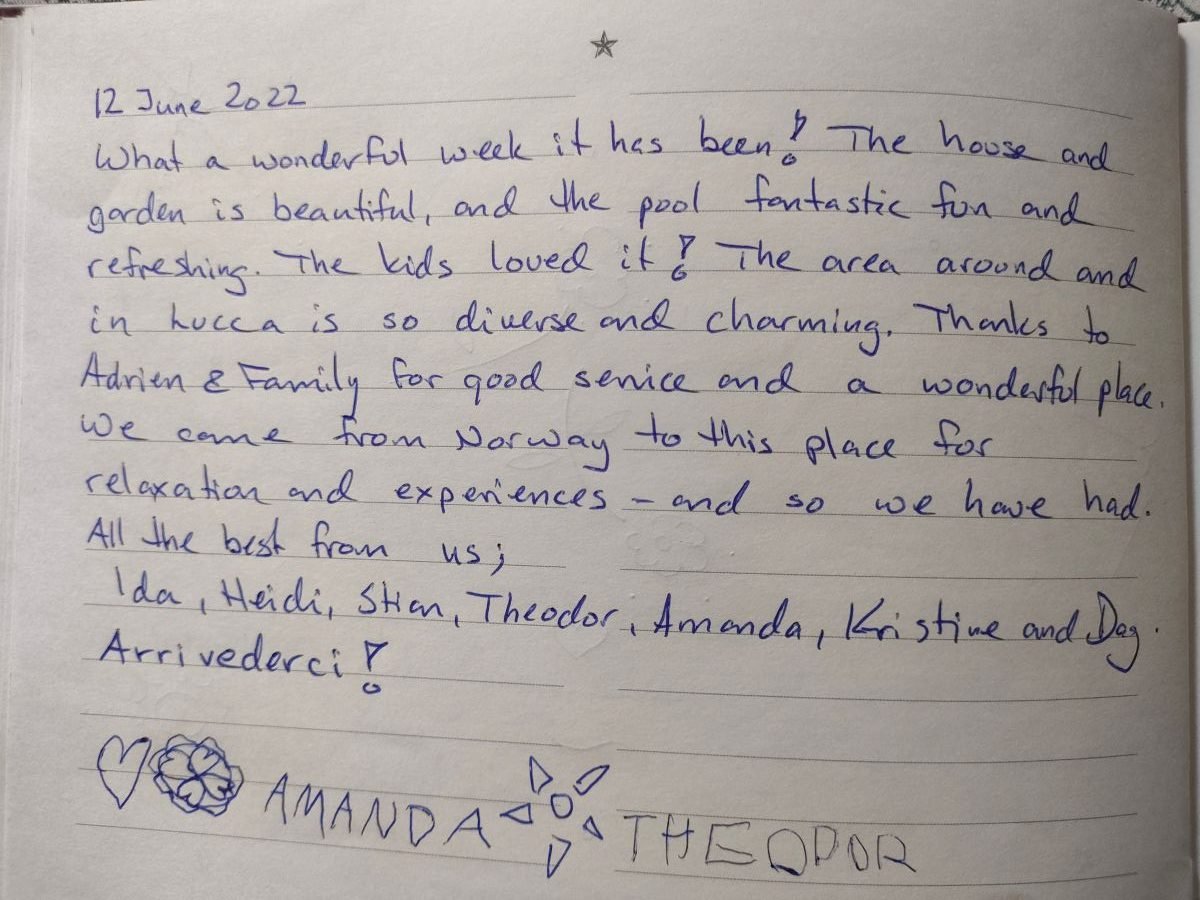 12 June 2022
What a wonderful week it has been! The house and
garden is beautiful, and the pool fantastic fun and
refreshing. The kids loved it! The area around and
in Lucca is so diverse and charming. Thanks to
Adrien & Family for good service and a wonderful place.
We came from Norway to this place for
relaxation and experiences – and so we have had.
All the best from us;
Ida, Heidi, Stian, Theodor, Amanda, Kristine and Dag.
Arrivederci!
AMANDA THEODOR